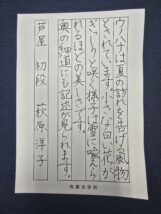 ウノハナは夏の訪れを告げる風物
とされています。小さな白い花が
ぎっしりと咲く様子は雪に喩えら
れるほどの美しさです。
奥の細道にも記述が見られます。
芦屋 初段 萩原洋子